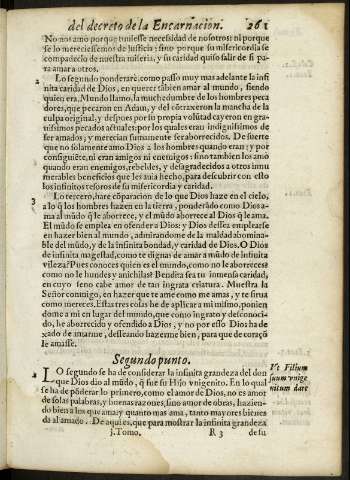 del decreto de la Encarnacion. 261
No nos amo porque tuuiesse necessidad de nosotros: ni porque
se lo mereciessemos de justicia; sino porque su misericordia se
compadecio de nuestra miseria, y su caridad quiso salir de si pa
ra amar a otros.
2 Lo segundo ponderarè, como passo muy mas adelante la infi
nita caridad de Dios, en querer tãbien amar al mundo, siendo
quien era. Mundo llamo, la muchedumbre de los hombres peca
dores, que pecaron en Adan, y del cõtraxeron la mancha de la
culpa original, y despues por su propia volutad cayeron en gra-
uissimos pecados actuales: por los quales eran indignissimos de
ser amados, y merecian sumamente ser aborrecidos. De suerte
que no solamente amo Dios a los hombres quando eran; y por
consiguiẽte, ni eran amigos ni enemigos: sino tambien los amo
quando eran enemigos, rebeldes, y desagradecidos a otros innu
merables beneficios que les auia hecho, para descubrir con esto
los infinitos tesoros de su misericordia y caridad.
3 Lo tercero, hare cõparacion de lo que Dios haze en el cielo,
a lo q̃ los hombres hazen en la tierra, ponderãdo como Dios a-
ma al mũdo q̃ le aborrece, y el mũdo aborrece al Dios q̃ le ama.
El mũdo se emplea en ofender a Dios: y Dios dessea emplearse
en hazer bien al mundo, admirandome de la maldad abomina-
ble del mũdo, y de la infinita bondad, y caridad de Dios. O Dios
de infinita magestad, como te dignas de amar a mũdo de infinita
vileza? Pues conoces quien es el mundo, como no le aborreces?
como no le hundes y anichilas? Bendita sea tu inmensa caridad,
en cuyo seno cabe amor de tan ingrata criatura. Muestra la
Señor conmigo, en hazer que te ame como me amas, y te sirua
como mereces. Estas tres cosas he de aplicar a mi mismo, ponien
dome a mi en lugar del mundo, que como ingrato y desconoci-
do, he aborrecido y ofendido a Dios, y no por esso Dios ha de
xado de amarme, desseando hazerme bien, para que de coraçõ
le amasse.
Segundo punto.
1 LO segundo se ha de considerar la infinita grandeza del don
que Dios dio al mũdo, q̃ fue su Hijo vnigenito. En lo qual
se ha de põderar lo primero, como el amor de Dios, no es amor
de solas palabras, y buenas razones, sino amor de obras, hazien-
do bien a los que ama: y quanto mas ama, tanto mayores bienes
da al amado. De aqui es, que para mostrar la infinita grandeza
Vt Filium
suum vnige
nitum daret
j. Tomo. R 3 de su